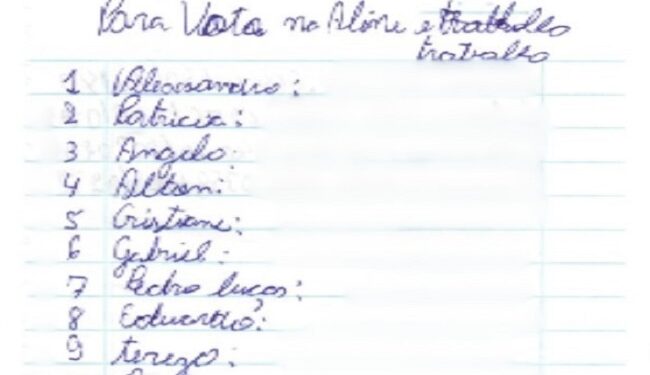 Para Vota no Aline e trabalho
trabalho
1 Alessandro:
2 Patricia:
3 Angelo:
4 Ailton:
5 Cristiane:
6 Gabriel:
7 Pedro Lucas:
8 Eduardo:
9 tereza: